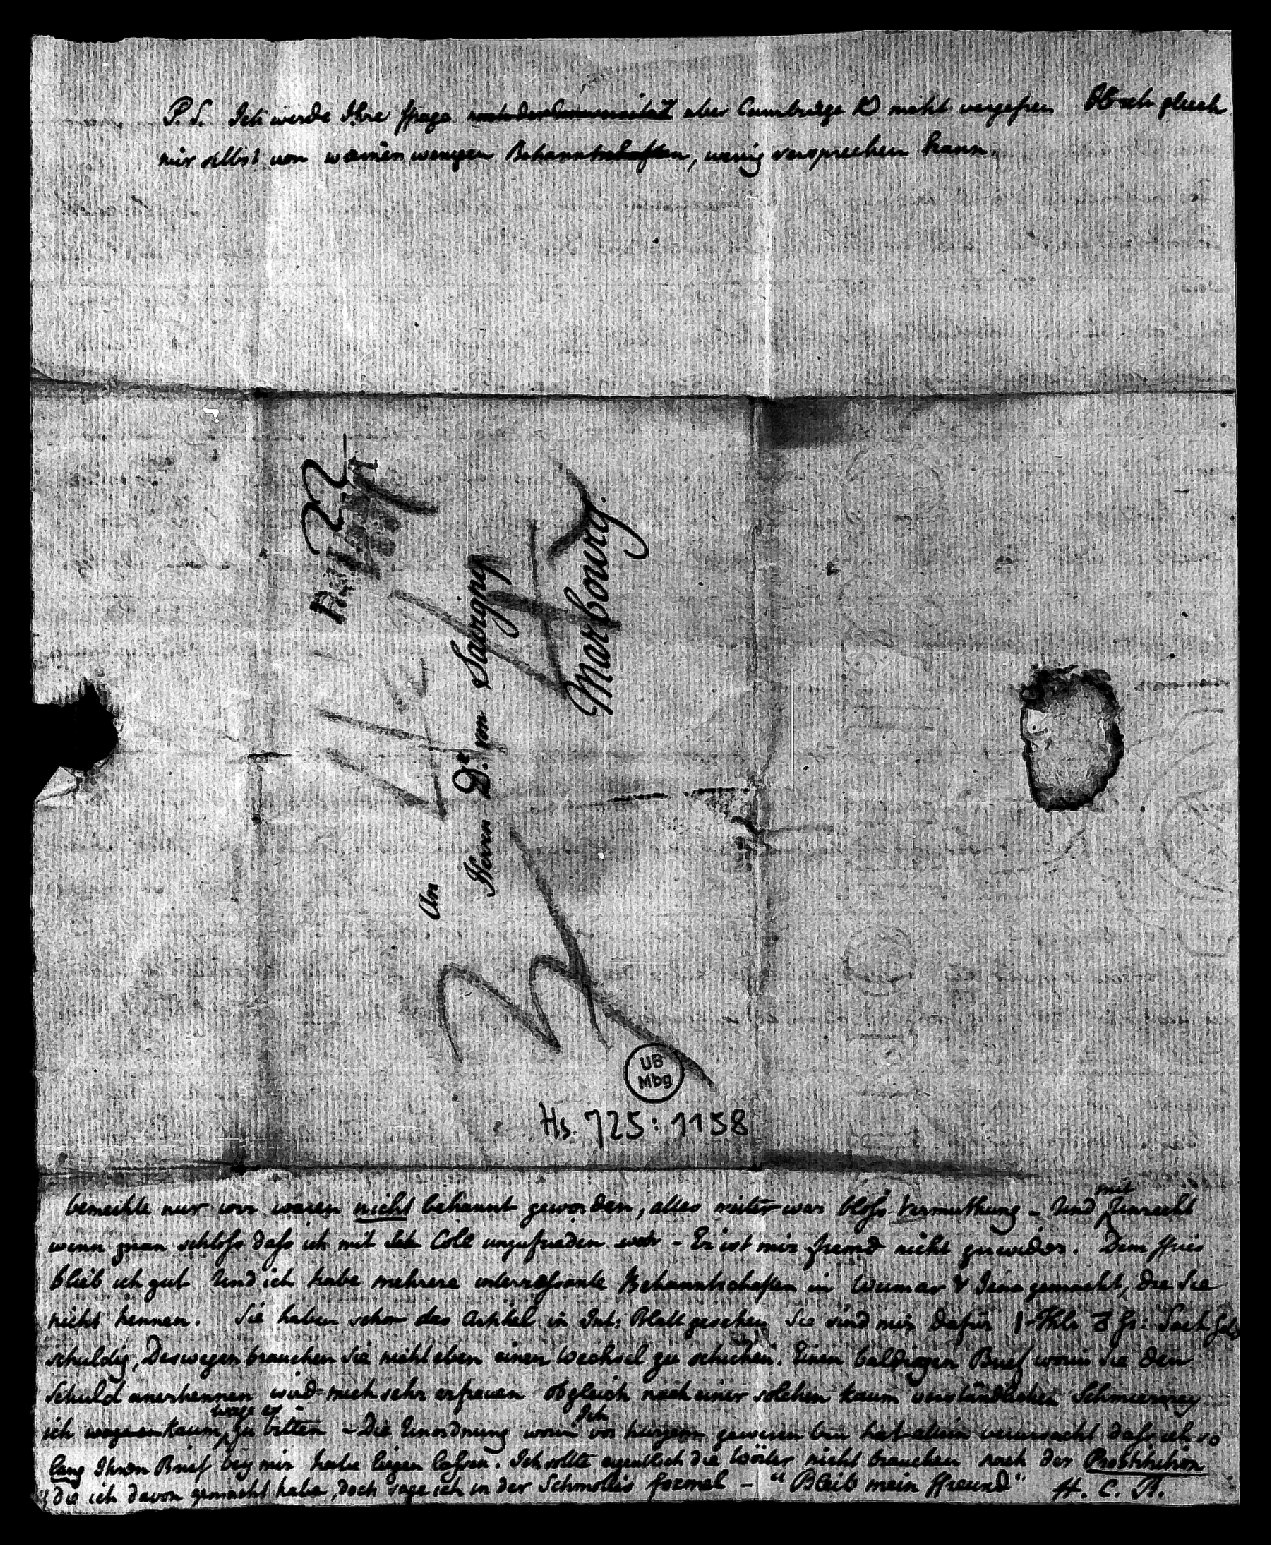 P.S. Ich werde Ihre Frage über Cambridge &c nicht vergessen Obschon gleich
mir selbst von meinen wenigen Bekanntschaften, wenig versprechen kann.
An
Herrn Dr. von Savigny
Marbourg.
UB
Mbg
Hs. 725:1158
bemerkte nur wir waren nicht bekannt geworden, alles weiter war bloss Vermuthung – Und mit Unrecht
wenn man schloss dass ich mit Coll unzufrieden – Er ist mir fremd nicht zuwider. Dem Fries
blieb ich gut Und ich habe mehrere interessante Bekanntschaften in Weimar & Jena gemacht, die Sie
nicht kennen. Sie haben schon den Artikel in Int: Blatt gesehen Sie sind mir dafür 1 Thlr 8 Gr:
schuldig, Deswegen brauchen Sie nicht eben einen Wechsel zu schicken. Einen baldigen Brief worin Sie den
Schuld anerkennen wird mich sehr erfreuen obgleich nach einer solchen kaum verständlichen Schmiererey
ich kaum wage es zu bitten – Die Unordnung worin ich vor kurzem gewesen bin hat allein verursacht dass ich so
lang Ihren Brief bey mir habe liegen lassen. Ich sollte eigentlich die Wörter nicht brauchen nach der Prostitution
die ich davon gemacht habe, doch sage ich in der Schmollis formel – "Bleib mein Freund" H. C. R.